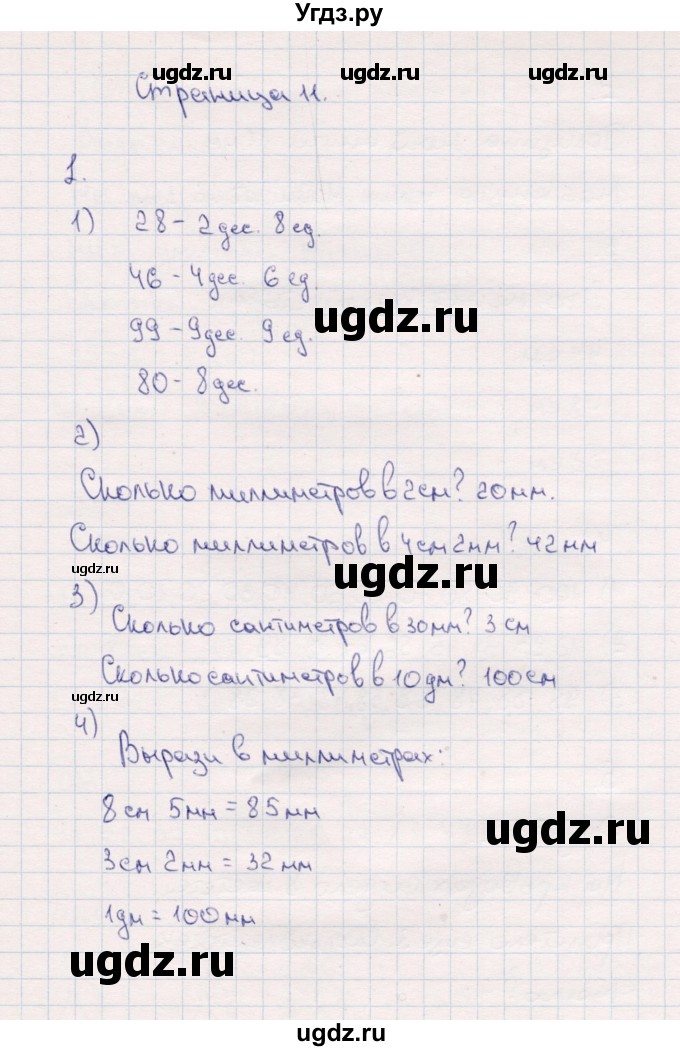 Угдз.ру
ugdz.ru ugdz.ru ugdz.ru
Страница 11.
1.
1) 28 - 2 дес. 8 ед.
46 - 4 дес. 6 ед.
ugdz.ru
99 - 9 дес. 9 ед.
80 - 8 дес.
2)
Сколько миллиметров в 2 см? 20 мм.
Сколько миллиметров в 4 см 2 мм? 42 мм
ugdz.ru ugdz.ru
3)
Сколько сантиметров в 30 мм? 3 см
Сколько сантиметров в 10 дм? 100 см
ugdz.ru
4)
Вырази в миллиметрах:
8 см 5 мм = 85 мм
ugdz.ru
3 см 2 мм = 32 мм
1 дм = 100 мм
ugdz.ru
ugdz.ru